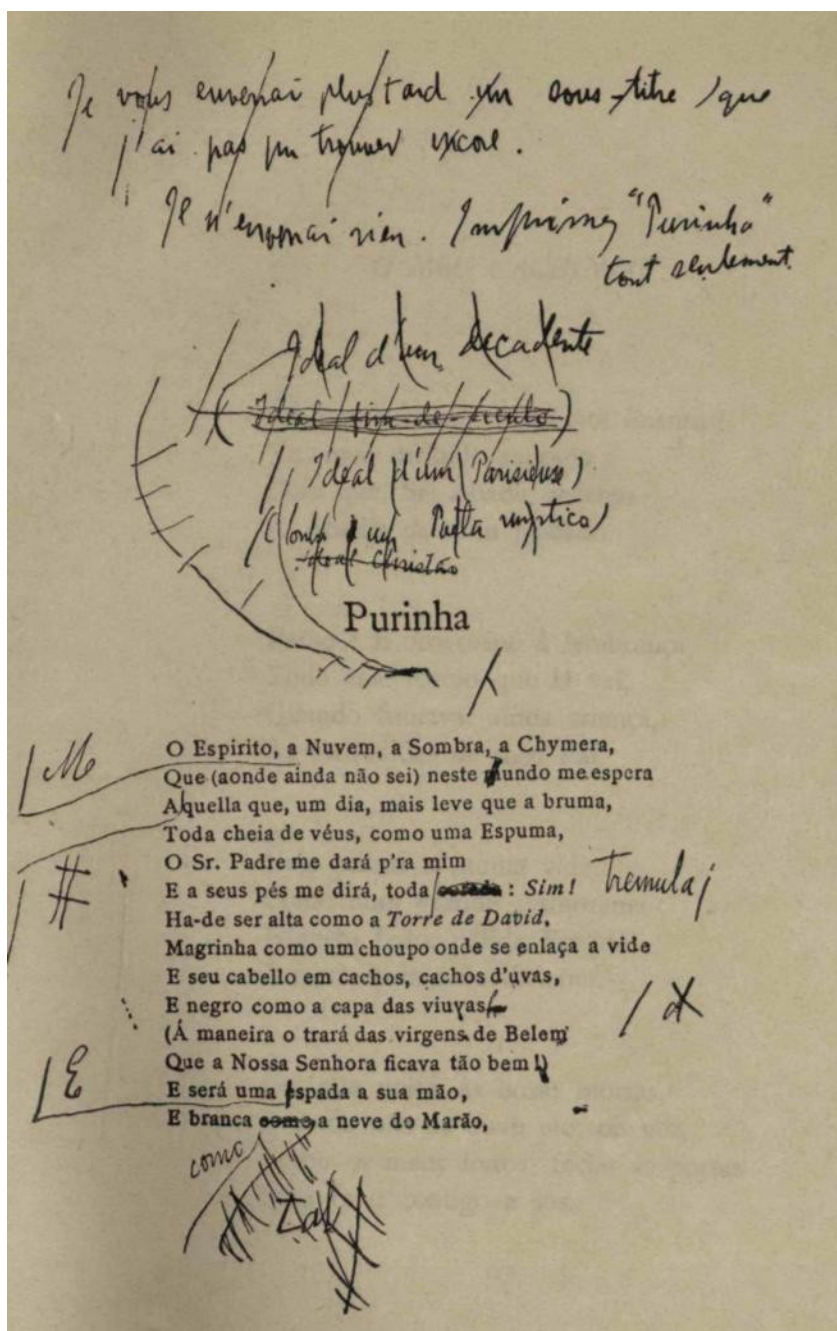 Je vous enverrai plus tard un sous-titre que
j'ai pas pu trouver encore.
Je n'enverrai rien. Imprimez "Purinha"
tout seulement.
Ideal d'um decadente
(Ideal fim-de-seculo)
Ideal d'um Parisiense)
um Poeta mystico)
Ideal Christão
Purinha
M
O Espirito, a Nuvem, a Sombra, a Chymera,
Que (aonde ainda não sei) neste mundo me espera
Aquella que, um dia, mais leve que a bruma,
Toda cheia de véus, como uma Espuma,
O Sr. Padre me dará p'ra mim
E a seus pés me dirá, toda corada: Sim! tremula
Ha-de ser alta como a Torre de David,
Magrinha como um choupo onde se enlaça a vide
E seu cabello em cachos, cachos d'uvas,
E negro como a capa das viuvas
(Á maneira o trará das virgens de Belem
Que a Nossa Senhora ficava tão bem!)
E
E será uma espada a sua mão,
E branca como a neve do Marão,
como
Tal